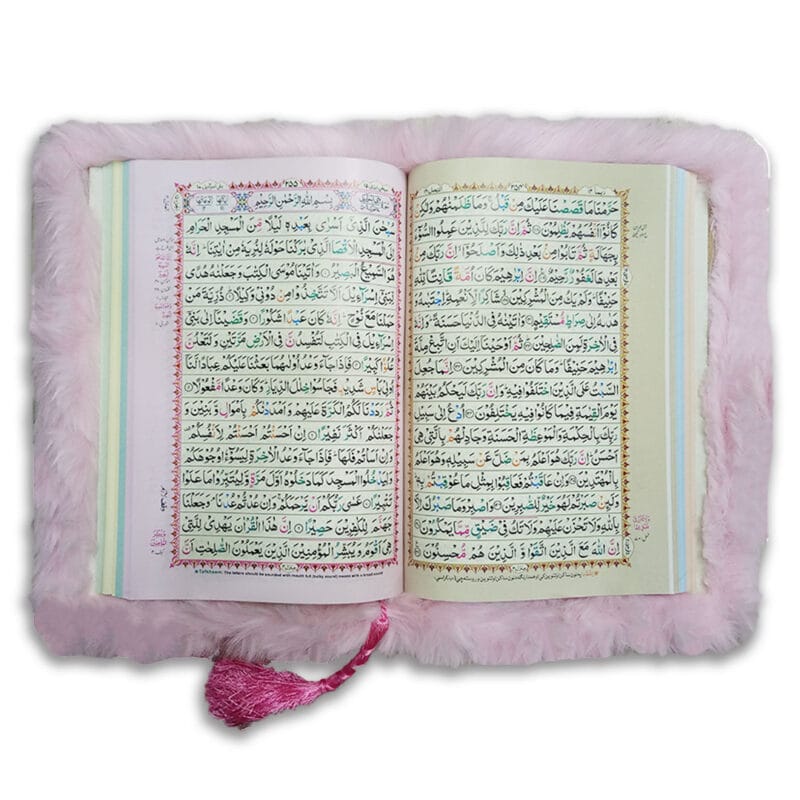 حَرَّمْنَا مَا قَصَصْنَا عَلَيْكَ مِنْ قَبْلُ ۚ وَمَا ظَلَمْنٰهُمْ وَلٰكِنْ
كَانُوْۤا اَنْفُسَهُمْ يَظْلِمُوْنَ ۝ ثُمَّ اِنَّ رَبَّكَ لِلَّذِيْنَ عَمِلُوا السُّوْٓءَ
بِجَهَالَةٍ ثُمَّ تَابُوْا مِنْۢ بَعْدِ ذٰلِكَ وَاَصْلَحُوْۤا ۙ اِنَّ رَبَّكَ مِنْۢ
بَعْدِهَا لَغَفُوْرٌ رَّحِيْمٌ ۝ اِنَّ اِبْرٰهِيْمَ كَانَ اُمَّةً قَانِتًا لِّلّٰهِ
حَنِيْفًا ؕ وَلَمْ يَكُ مِنَ الْمُشْرِكِيْنَ ۝ شَاكِرًا لِّاَنْعُمِهٖ ؕ اِجْتَبٰىهُ وَ
هَدٰىهُ اِلٰى صِرَاطٍ مُّسْتَقِيْمٍ ۝ وَاٰتَيْنٰهُ فِى الدُّنْيَا حَسَنَةً ؕ وَاِنَّهٗ
فِى الْاٰخِرَةِ لَمِنَ الصّٰلِحِيْنَ ۝ ثُمَّ اَوْحَيْنَاۤ اِلَيْكَ اَنِ اتَّبِعْ مِلَّةَ
اِبْرٰهِيْمَ حَنِيْفًا ؕ وَمَا كَانَ مِنَ الْمُشْرِكِيْنَ ۝ اِنَّمَا جُعِلَ
السَّبْتُ عَلَى الَّذِيْنَ اخْتَلَفُوْا فِيْهِ ؕ وَاِنَّ رَبَّكَ لَيَحْكُمُ بَيْنَهُمْ
يَوْمَ الْقِيٰمَةِ فِيْمَا كَانُوْا فِيْهِ يَخْتَلِفُوْنَ ۝ اُدْعُ اِلٰى سَبِيْلِ
رَبِّكَ بِالْحِكْمَةِ وَالْمَوْعِظَةِ الْحَسَنَةِ وَجَادِلْهُمْ بِالَّتِىْ هِىَ
اَحْسَنُ ؕ اِنَّ رَبَّكَ هُوَ اَعْلَمُ بِمَنْ ضَلَّ عَنْ سَبِيْلِهٖ وَهُوَ اَعْلَمُ
بِالْمُهْتَدِيْنَ ۝ وَاِنْ عَاقَبْتُمْ فَعَاقِبُوْا بِمِثْلِ مَا عُوْقِبْتُمْ بِهٖ ؕ
وَلَئِنْ صَبَرْتُمْ لَهُوَ خَيْرٌ لِّلصّٰبِرِيْنَ ۝ وَاصْبِرْ وَمَا صَبْرُكَ اِلَّا
بِاللّٰهِ وَلَا تَحْزَنْ عَلَيْهِمْ وَلَا تَكُ فِىْ ضَيْقٍ مِّمَّا يَمْكُرُوْنَ ۝
اِنَّ اللّٰهَ مَعَ الَّذِيْنَ اتَّقَوْا وَّالَّذِيْنَ هُمْ مُّحْسِنُوْنَ ۝
۲۵۵
بِسْمِ اللّٰهِ الرَّحْمٰنِ الرَّحِيْمِ
سُبْحٰنَ الَّذِىْۤ اَسْرٰى بِعَبْدِهٖ لَيْلًا مِّنَ الْمَسْجِدِ الْحَرَامِ
اِلَى الْمَسْجِدِ الْاَقْصَا الَّذِىْ بٰرَكْنَا حَوْلَهٗ لِنُرِيَهٗ مِنْ اٰيٰتِنَا ؕ اِنَّهٗ
هُوَ السَّمِيْعُ الْبَصِيْرُ ۝ وَاٰتَيْنَا مُوْسَى الْكِتٰبَ وَجَعَلْنٰهُ هُدًى
لِّبَنِىْۤ اِسْرَآءِيْلَ اَلَّا تَتَّخِذُوْا مِنْ دُوْنِىْ وَكِيْلًا ۝ ذُرِّيَّةَ مَنْ
حَمَلْنَا مَعَ نُوْحٍ ؕ اِنَّهٗ كَانَ عَبْدًا شَكُوْرًا ۝ وَقَضَيْنَاۤ اِلٰى بَنِىْۤ
اِسْرَآءِيْلَ فِى الْكِتٰبِ لَتُفْسِدُنَّ فِى الْاَرْضِ مَرَّتَيْنِ وَلَتَعْلُنَّ
عُلُوًّا كَبِيْرًا ۝ فَاِذَا جَآءَ وَعْدُ اُوْلٰىهُمَا بَعَثْنَا عَلَيْكُمْ عِبَادًا لَّنَاۤ
اُولِىْ بَاْسٍ شَدِيْدٍ فَجَاسُوْا خِلٰلَ الدِّيَارِ ؕ وَكَانَ وَعْدًا مَّفْعُوْلًا ۝
ثُمَّ رَدَدْنَا لَكُمُ الْكَرَّةَ عَلَيْهِمْ وَاَمْدَدْنٰكُمْ بِاَمْوَالٍ وَّبَنِيْنَ وَ
جَعَلْنٰكُمْ اَكْثَرَ نَفِيْرًا ۝ اِنْ اَحْسَنْتُمْ اَحْسَنْتُمْ لِاَنْفُسِكُمْ ۫
وَاِنْ اَسَاْتُمْ فَلَهَا ؕ فَاِذَا جَآءَ وَعْدُ الْاٰخِرَةِ لِيَسُوْٓءٗا وُجُوْهَكُمْ
وَلِيَدْخُلُوا الْمَسْجِدَ كَمَا دَخَلُوْهُ اَوَّلَ مَرَّةٍ وَّلِيُتَبِّرُوْا مَا عَلَوْا
تَتْبِيْرًا ۝ عَسٰى رَبُّكُمْ اَنْ يَّرْحَمَكُمْ ۚ وَاِنْ عُدْتُّمْ عُدْنَا ۘ وَجَعَلْنَا
جَهَنَّمَ لِلْكٰفِرِيْنَ حَصِيْرًا ۝ اِنَّ هٰذَا الْقُرْاٰنَ يَهْدِىْ لِلَّتِىْ
هِىَ اَقْوَمُ وَيُبَشِّرُ الْمُؤْمِنِيْنَ الَّذِيْنَ يَعْمَلُوْنَ الصّٰلِحٰتِ اَنَّ
Tafkheem: The letters should be sounded with mouth full (bulky sound) means with a broad sound